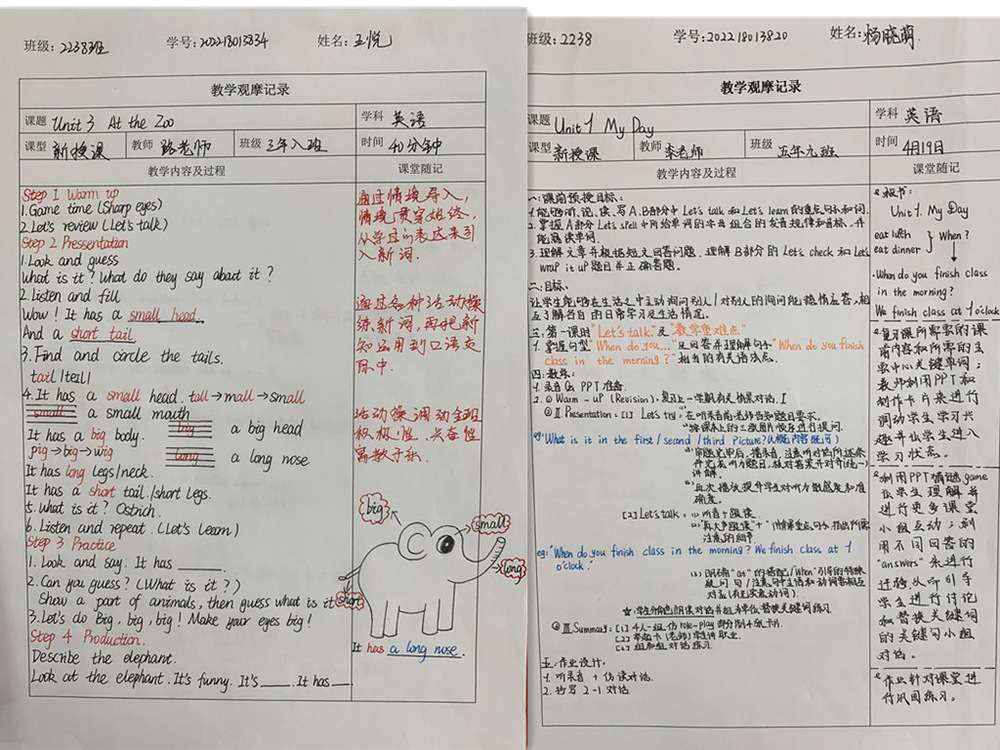 班级：2238班 学号：202218013834 姓名：王悦
教学观摩记录
课题 Unit 3 At the Zoo 学科 英语
课型 新授课 教师 路老师 班级 三年八班 时间 40分钟
教学内容及过程 课堂随记
Step 1 Warm up
1. Game time (Sharp eyes)
2. Let's review (Let's talk)
Step 2 Pressentation
1. Look and guess
What is it? What do they say about it?
2. Listen and fill
Wow! It has a small head.
And a short tail
3. Find and circle the tails.
tail /teɪl/
4. It has a small head. tall→mall→small
small a small mouth
It has a big body. big a big head
pig→big→wig
long a long nose
It has long legs/neck.
It has a short tail./short legs.
5. What is it? Ostrich.
6. Listen and repeat. (Let's learn)
Step 3 Practice
1. Look and say. It has ____.
2. Can you guess? (What is it?)
Show a part of animals, then guess what is it
3. Let's do Big, big, big! Make your eyes big!
Step 4 Production.
Describe the elephant.
Look at the elephant. It's funny. It's ____. It has ____.
通过情境导入，
情境贯穿始终，
从学过的表达来引
入新词。
通过各种活动操
练新词，再把新
知运用到口语交
际中。
活动操调动全班
积极性，兴奋性
寓教于乐。
big
small
long
short
It has a long nose.
班级：2238 学号：202218013820 姓名：杨晓萌
教学观摩记录
课题 Unit 1 My Day 学科 英语
课型 新授课 教师 李老师 班级 五年九班 时间 4月19日
教学内容及过程 课堂随记
一：课前预授目标：
1. 能够听、说、读、写A、B部分中Let's talk 和Let's learn的重点句和词。
2. 掌握A部分Let's spell中所给单词的字母组合的发音规律和音标，并
能流读单词。
3. 理解文章并根据短文回答问题，理解B部分的Let's check 和Let's
wrap it up题目并正确答题。
二：目标：
让学生能够在生活之中主动询问别人/对别人的询问能热情应答，相
互了解各自的日常学习及生活情况。
三：第一课时"Let's talk."及"教学重难点"
1. 掌握句型"When do you..."及回答并理解句子"When do you finish
class in the morning?"相当的有关语法点。
四：教学：
1. 录音 PPT准备.
2. ① Warm-up (Revision)：复习上一学期有关情景对话.
② Ⅱ Presentation：[1] Let's try：在听录音前老师告知题目要求。
按课本上的三张图片顺序进行提问.
eg: "What is it in the first/second/third Picture?
再次播放提升学生对听力敏感度和准
确度。
[2] Let's talk：听音+跟读.
注意的细节
eg: "When do you finish class in the morning? We finish class at 1
o'clock."
③ Ⅲ Summary：[1] 4人一组，仿role-play部分制4张卡片.
五：作业设计：
1. 听录音 + 仿读对话.
2. 抄写2-1对话
板书：
Unit 1. My Day
eat lunch
eat dinner } When?
When do you finish class
in the morning?
We finish class at 1 o'clock
复习课所需要的课
前内容和所需的主
要中心关键单词；
教师利用PPT和
制作卡片来进行
调动学生学习兴
趣并让学生进入
学习状态。
利用PPT猜谜game
让学生理解并
进行更多课堂
小组互动；利
用不同回答的
"answers"来进行
迁移从而引导
学生进行讨论
和替换关键词
的关键句小组
对话。
作业针对课堂进
行巩固练习。